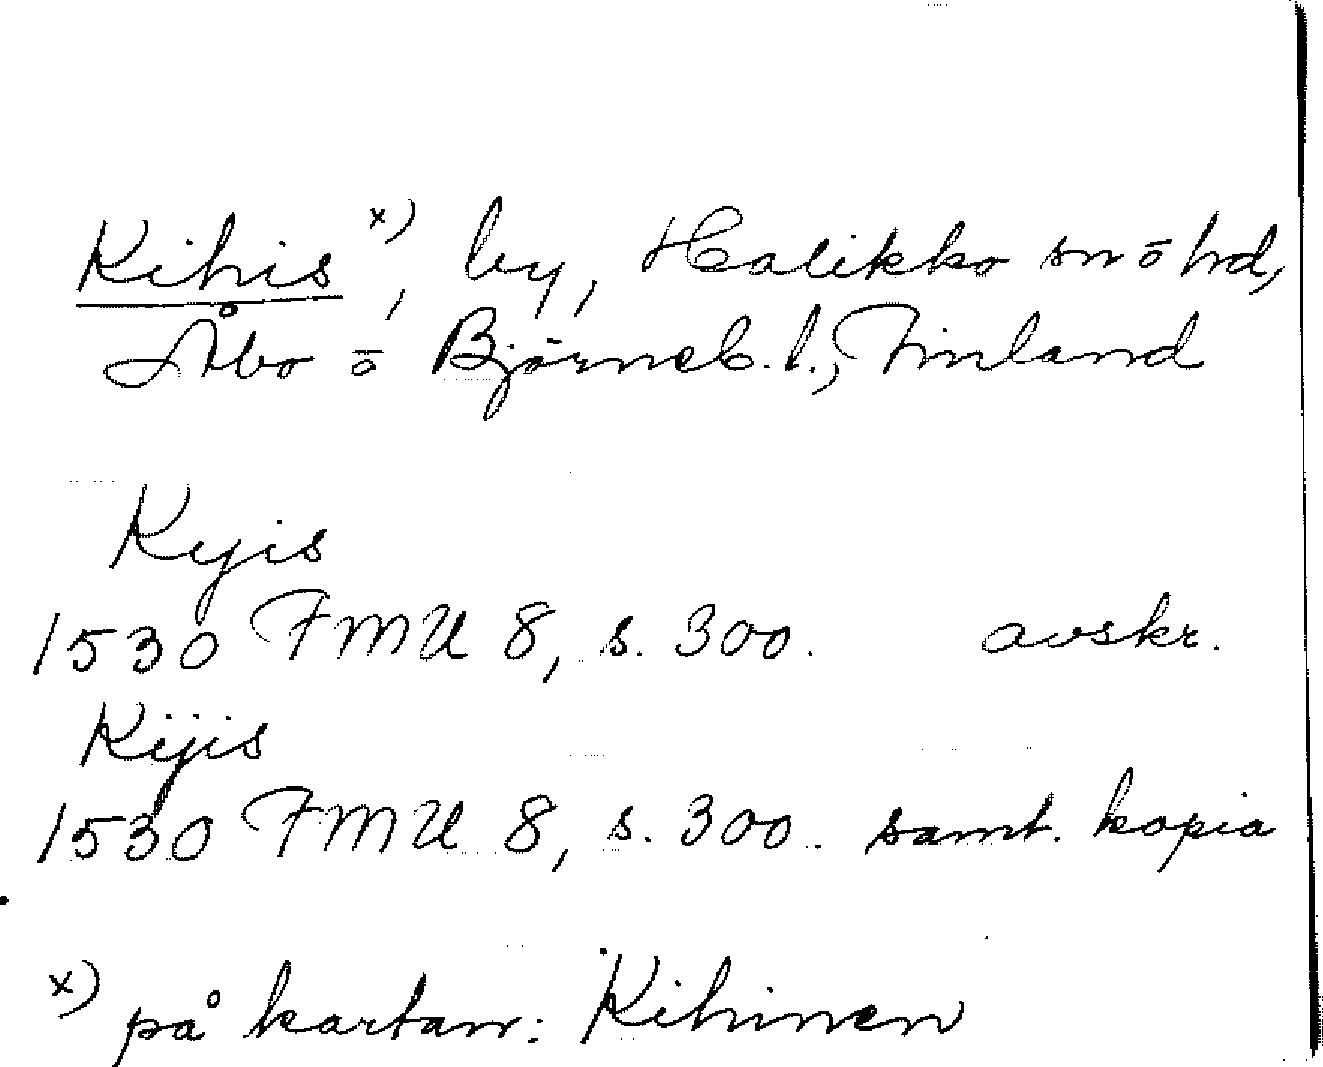 Kihis x), by, Halikko sn o hd,
Åbo o Björneb. l., Finland
Kyjis
1530 FMU 8, s. 300. avskr.
Kijis
1530 FMU 8, s. 300. samt. kopia
x) på kartan: Kihinen